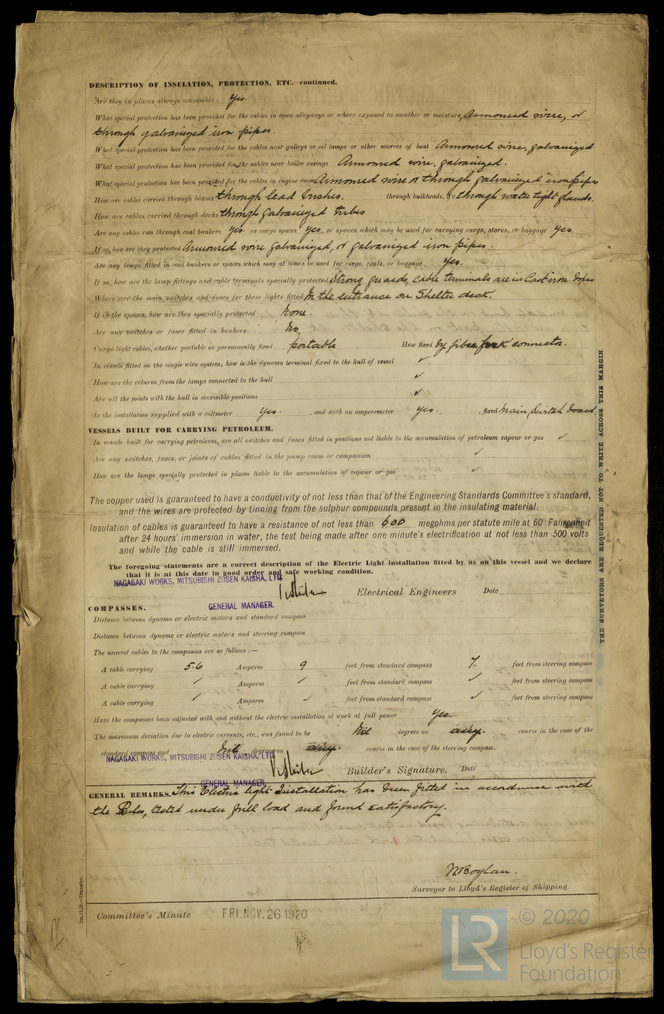 DESCRIPTION OF INSULATION, PROTECTION, ETC.—continued.
Are they in places always accessible Yes.
What special protection has been provided for the cables in open alleyways or where exposed to weather or moisture Armoured wire, or
through galvanized iron pipes
What special protection has been provided for the cables near galleys or oil lamps or other sources of heat Armoured wire, galvanized
What special protection has been provided for the cables near boiler casings Armoured wire, galvanized.
What special protection has been provided for the cables in engine room Armoured wire or through galvanized iron pipes
How are cables carried through beams through lead bushes. through bulkheads, &c through water tight glands.
How are cables carried through decks through galvanized tubes
Are any cables run through coal bunkers Yes or cargo spaces Yes, or spaces which may be used for carrying cargo, stores, or baggage Yes
If so, how are they protected Armoured wire galvanized, or galvanized iron pipes.
Are any lamps fitted in coal bunkers or spaces which may at times be used for cargo, coals, or baggage Yes.
If so, how are the lamp fittings and cable terminals specially protected Strong guards, cable terminals are in Cast iron boxes
Where are the main switches and fuses for these lights fitted In the entrance on Shelter deck.
If in the spaces, how are they specially protected None.
Are any switches or fuses fitted in bunkers No.
Cargo light cables, whether portable or permanently fixed portable How fixed by fibre connector.
In vessels fitted on the single wire system, how is the dynamo terminal fixed to the hull of vessel ✓
How are the returns from the lamps connected to the hull ✓
Are all the joints with the hull in accessible positions ✓
Is the installation supplied with a voltmeter Yes. , and with an amperemeter Yes. , fixed Main switch board
VESSELS BUILT FOR CARRYING PETROLEUM.
In vessels built for carrying petroleum, are all switches and fuses fitted in positions not liable to the accumulation of petroleum vapour or gas ✓
Are any switches, fuses, or joints of cables fitted in the pump room or companion ✓
How are the lamps specially protected in places liable to the accumulation of vapour or gas ✓
The copper used is guaranteed to have a conductivity of not less than that of the Engineering Standards Committee's standard,
and the wires are protected by tinning from the sulphur compounds present in the insulating material.
Insulation of cables is guaranteed to have a resistance of not less than 600 megohms per statute mile at 60° Fahrenheit
after 24 hours' immersion in water, the test being made after one minute's electrification at not less than 500 volts
and while the cable is still immersed.
The foregoing statements are a correct description of the Electric Light installation fitted by us on this vessel and we declare
that it is at this date in good order and safe working condition.
NAGASAKI WORKS, MITSUBISHI ZOSEN KAISHA, LTD.
Electrical Engineers Date
GENERAL MANAGER.
COMPASSES.
Distance between dynamo or electric motors and standard compass
Distance between dynamo or electric motors and steering compass
The nearest cables to the compasses are as follows:—
A cable carrying 5.6 Amperes 9 feet from standard compass 7. feet from steering compass
A cable carrying ✓ Amperes ✓ feet from standard compass ✓ feet from steering compass
A cable carrying ✓ Amperes ✓ feet from standard compass ✓ feet from steering compass
Have the compasses been adjusted with and without the electric installation at work at full power Yes.
The maximum deviation due to electric currents, etc., was found to be Nil degrees on any. course in the case of the
standard compass and Nil degrees on any. course in the case of the steering compass.
NAGASAKI WORKS, MITSUBISHI ZOSEN KAISHA, LTD.
Builder's Signature. Date
GENERAL MANAGER.
GENERAL REMARKS. This Electric light Installation has been fitted in accordance with
the Rules, tested under full load and found satisfactory.
Surveyor to Lloyd's Register of Shipping.
Committee's Minute FRI. NOV. 26 1920
THE SURVEYORS ARE REQUESTED NOT TO WRITE ACROSS THIS MARGIN
LR © 2020
Lloyd's Register
Foundation